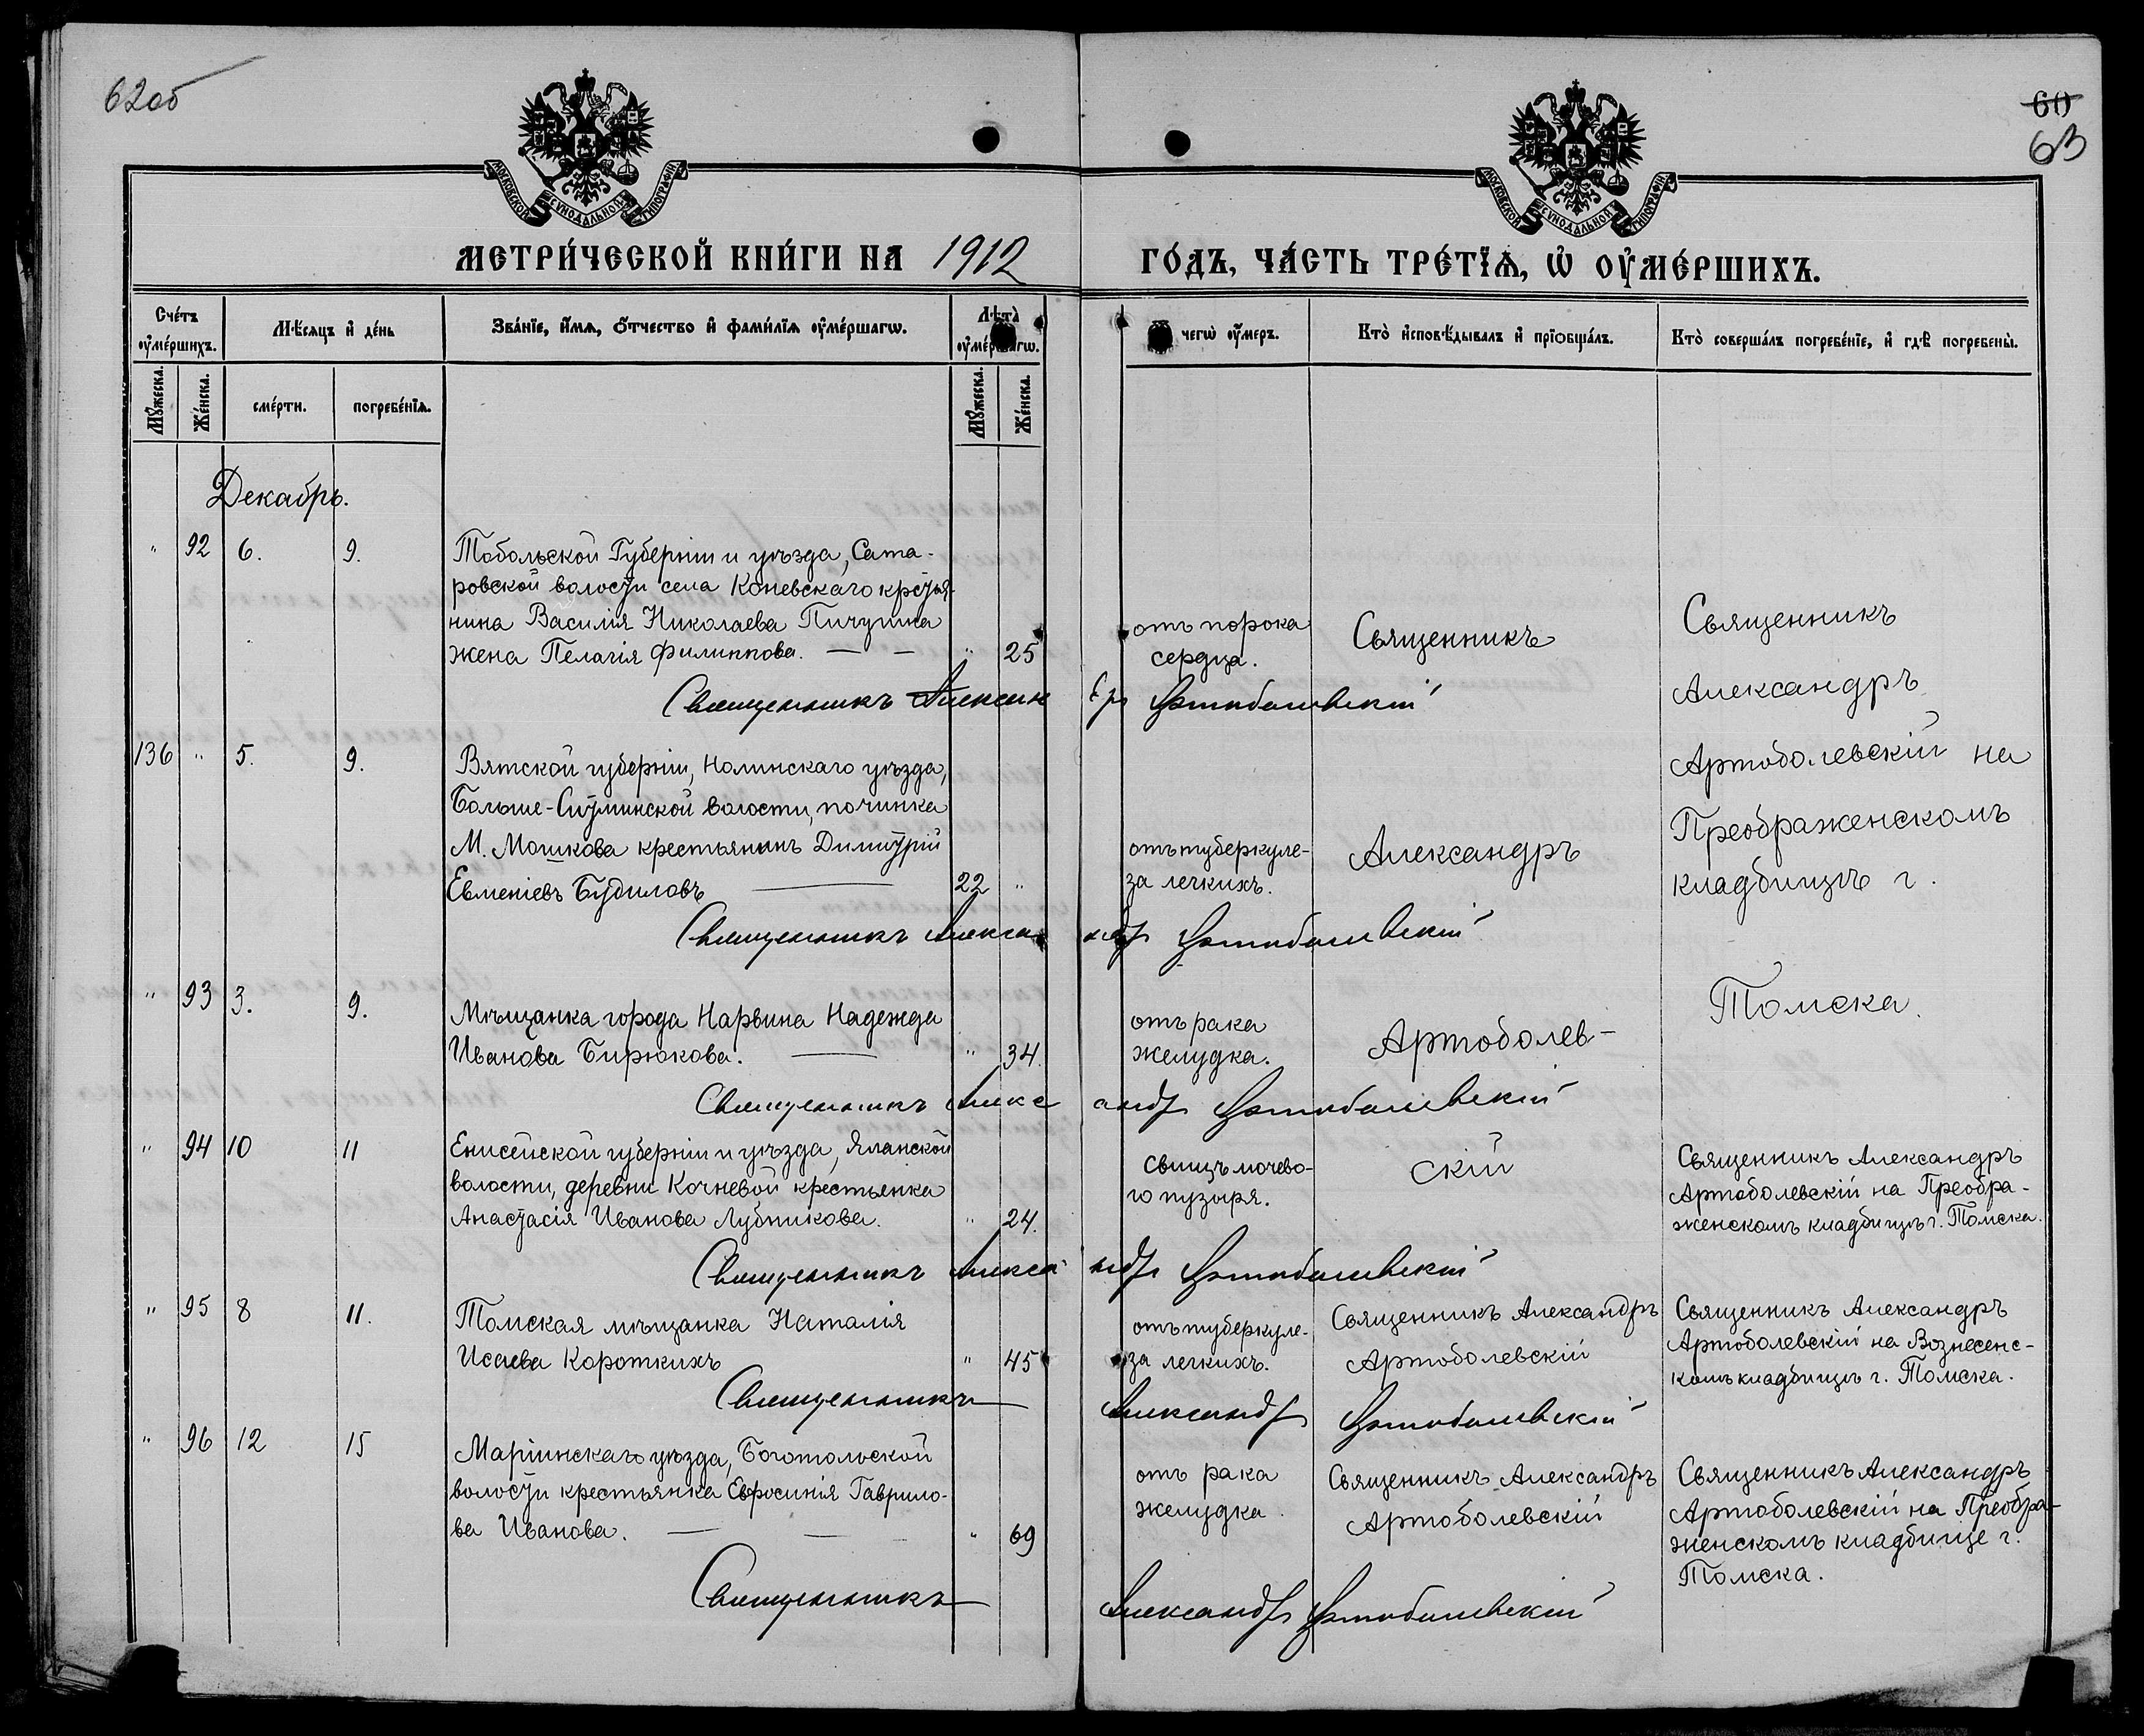 62об
60
63
МОСКОВСКОЙ СѴНОДАЛЬНОЙ ТИПОГРАФІИ
МОСКОВСКОЙ СѴНОДАЛЬНОЙ ТИПОГРАФІИ
МЕТРИ́ЧЕСКОЙ КНИ́ГИ НА 1912 ГО́ДЪ, ЧА́СТЬ ТРЕ́ТЇѦ, Ѡ҆ ОУ҆МЕ́РШИХЪ.
Сче́тъ оу҆ме́ршихъ.
Мѣ́сяцъ и҆ де́нь
Зва́нїе, и҆́мѧ, ѻ҆́тчество и҆ фами́лїѧ оу҆ме́ршагѡ.
Лѣ́та оу҆ме́ршагѡ.
чегѡ̀ оу҆́меръ.
Кто̀ и҆сповѣ́дывалъ и҆ прїобща́лъ.
Кто̀ соверша́лъ погребе́нїе, и҆ гдѣ̀ погребены̀.
Мꙋ́жеска.
Же́нска.
сме́рти.
погребе́нїѧ.
Мꙋ́жеска.
Же́нска.
Декабрь.
" 92 6. 9. Тобольской Губерніи и уѣзда, Сата-
ровской волости села Коневскаго крстья-
нина Василія Николаева Пичугина
жена Пелагія Филиппова. — — " 25
отъ порока
сердца.
Священникъ
Священникъ
Александръ
Священникъ Александръ Артоболевскій
136 " 5. 9. Вятской губерніи, Нолинскаго уѣзда,
Больше-Ситминской волости, починка
М. Мошкова крестьянинъ Димитрій
Евменіевъ Будиловъ — 22 "
отъ туберкуле-
за легкихъ.
Александръ
Артоболевскій на
Преображенскомъ
кладбищѣ г.
Священникъ Александръ Артоболевскій
" 93 3. 9. Мѣщанка города Нарвина Надежда
Иванова Бирюкова. — " 34.
отъ рака
желудка.
Артоболев-
Томска.
Священникъ Александръ Артоболевскій
" 94 10 11 Енисейской губерніи и уѣзда, Яланской
волости, деревни Кочневой крестьянка
Анастасія Иванова Лубникова. " 24.
свищъ мочево-
го пузыря.
скій
Священникъ Александръ
Артоболевскій на Преобра-
женскомъ кладбищѣ г. Томска.
Священникъ Александръ Артоболевскій
" 95 8 11. Томская мѣщанка Наталія
Исаева Короткихъ " 45
отъ туберкуле-
за легкихъ.
Священникъ Александръ
Артоболевскій
Священникъ Александръ
Артоболевскій на Вознесенс-
комъ кладбищѣ г. Томска.
Священникъ Александръ Артоболевскій
" 96 12 15 Маріинскаго уѣзда, Боготольской
волости крестьянка Евфросинія Гаврило-
ва Иванова. — — " 69
отъ рака
желудка.
Священникъ Александръ
Артоболевскій
Священникъ Александръ
Артоболевскій на Преобра-
женскомъ кладбище г.
Томска.
Священникъ Александръ Артоболевскій